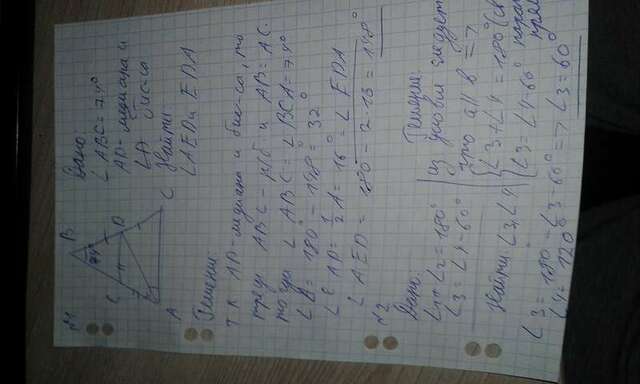 №1
B
74°
E
D
A
C
Дано:
∠ABC=74°
AD-медиана и
∠A бис-са
Найти:
∠AED и EDA
Решение:
т.к AD-медиана и бис-са, то
треуг ABC-р/б и AB=AC.
тогда ∠ABC=∠BCA=74°
∠A=180°-148°=32°
∠EAD=1/2A=16°=∠EDA
∠AED=180-2·16=148°
№2
Дано:
∠1+∠2=180°
∠3=∠4-60°
Найти: ∠3, ∠4
Решение:
из условия следует
что a||b =>
∠3+∠4=180° (св
∠3=∠4-60° парал
прям
∠3=180°-∠3-60° => ∠3=60°
∠4=120°